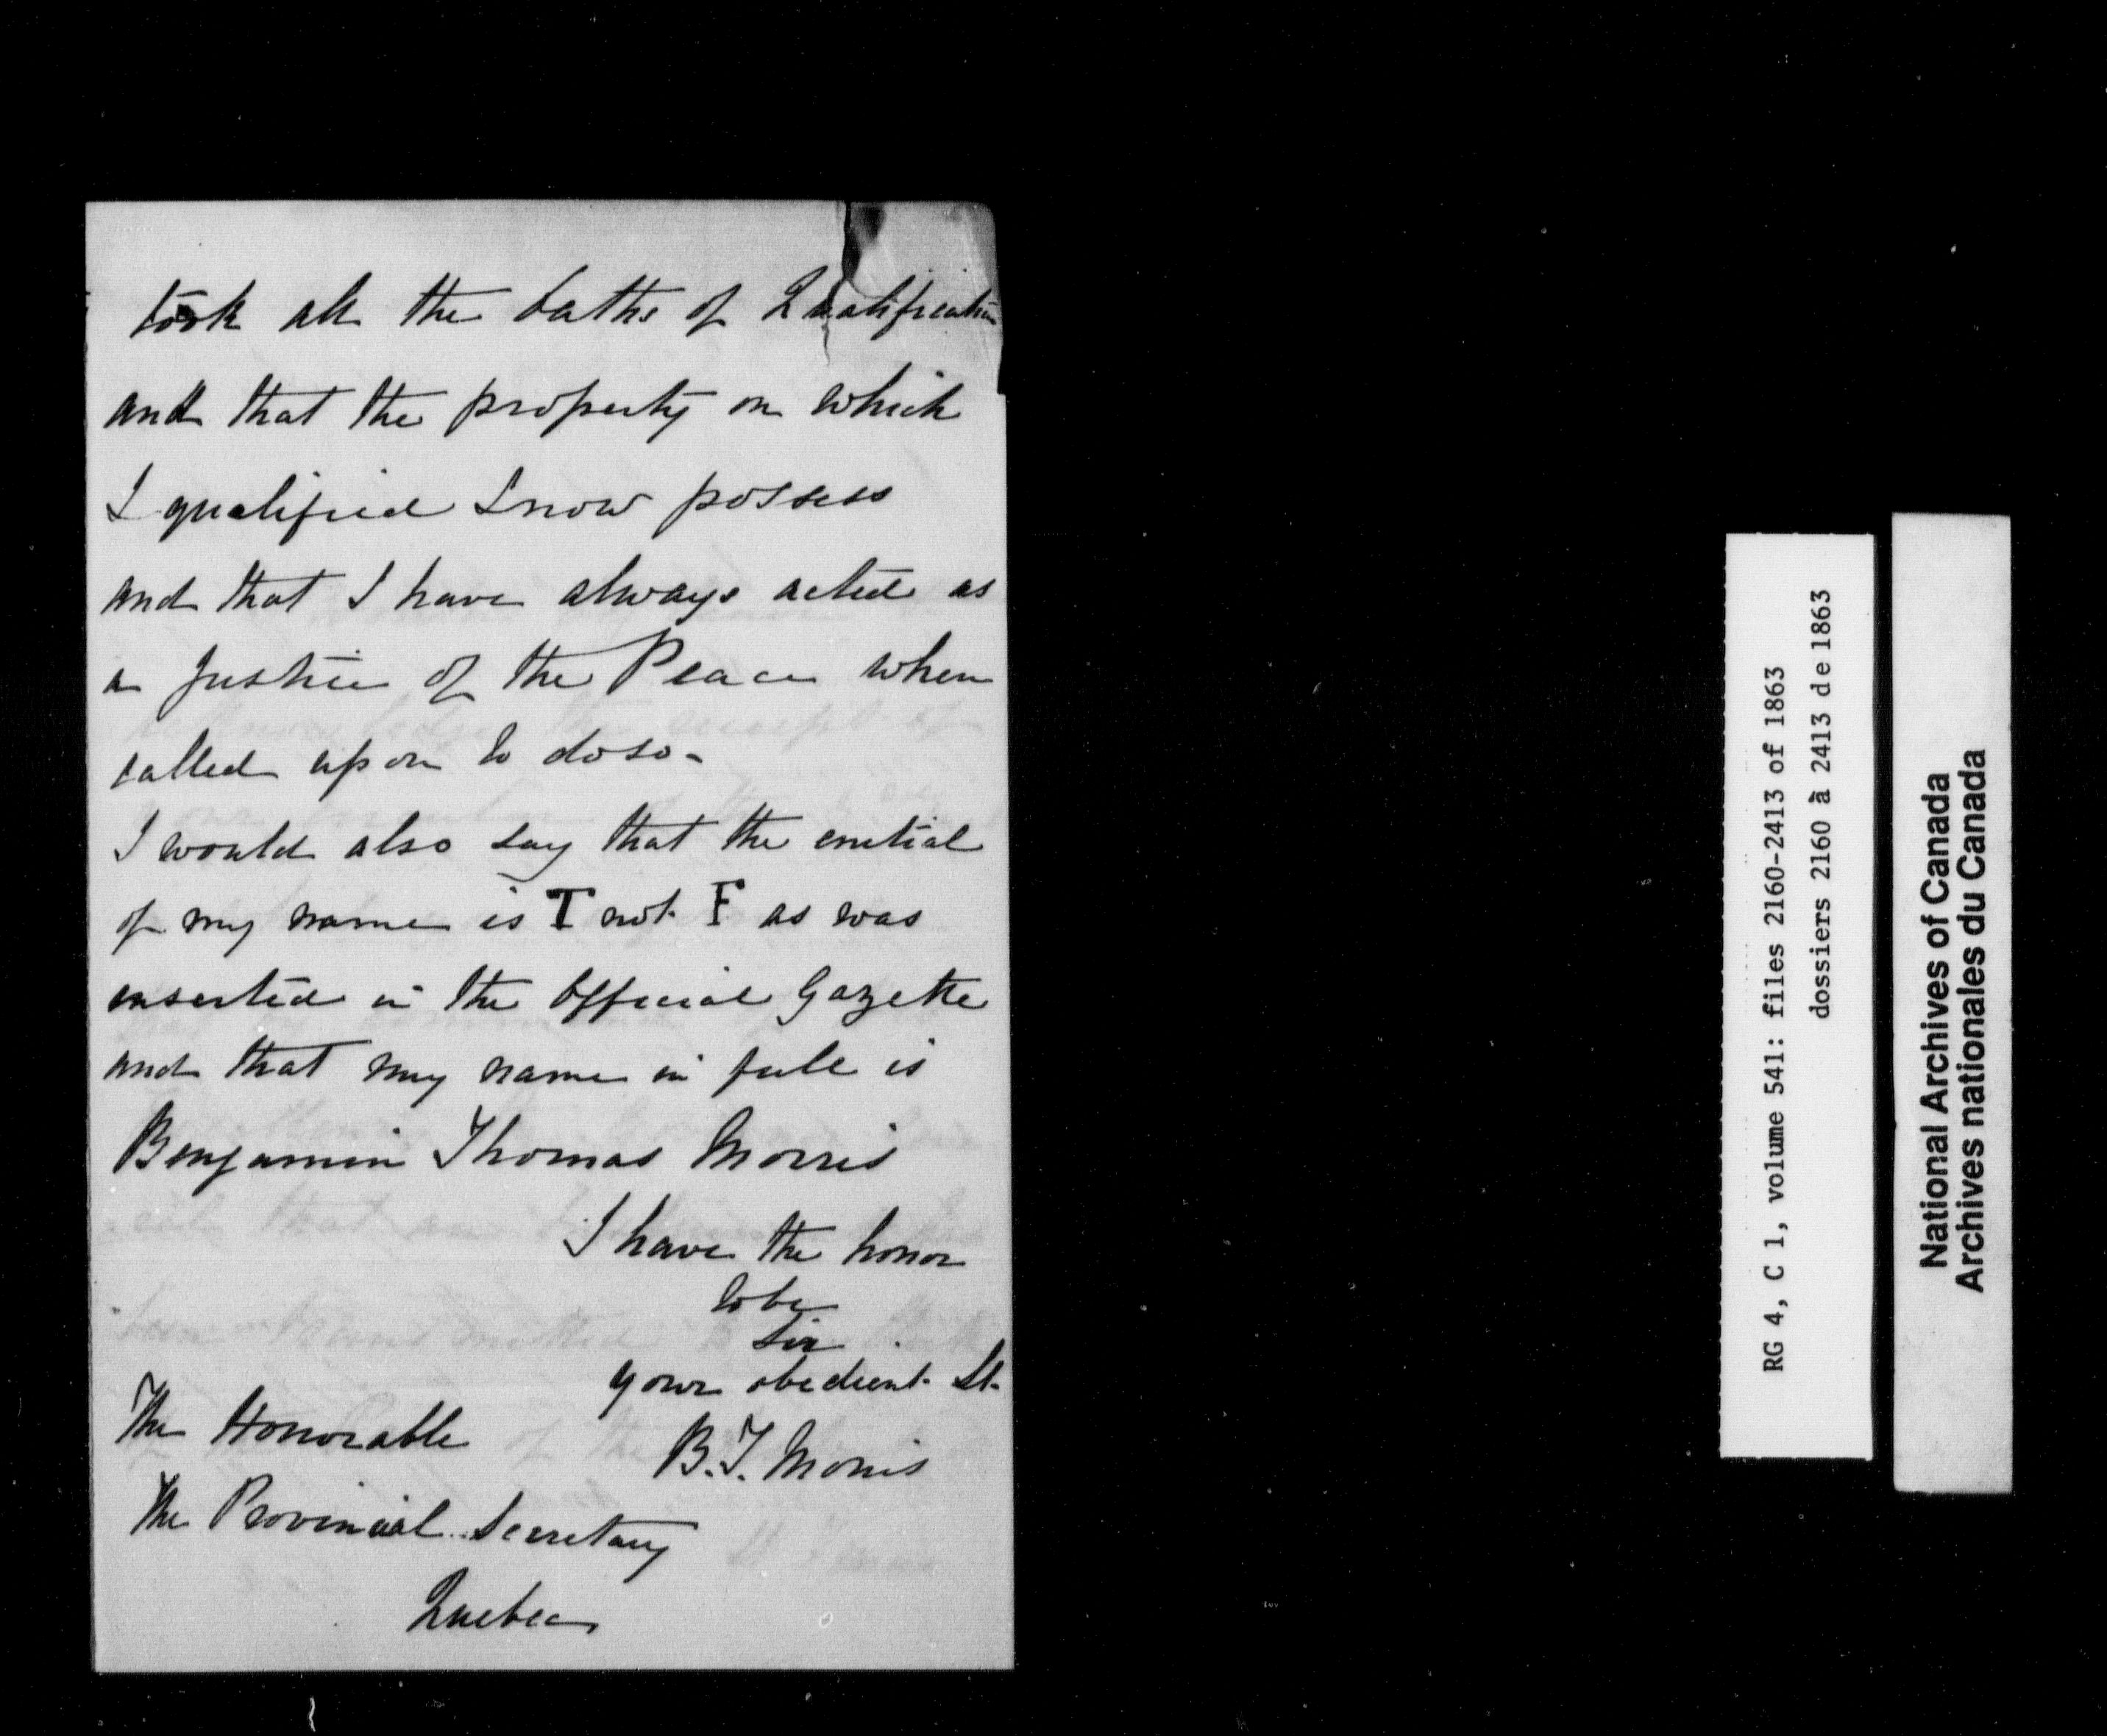 took all the Oaths of Qualification
and that the property on which
I qualified I now possess
and that I have always acted as
a Justice of the Peace when
called upon to do so -
I would also say that the initial
of my name is T not F as was
inserted in the Official Gazette
and that my name in full is
Benjamin Thomas Morris
I have the honor
to be
Sir
your obedient St.
B.T. Morris
The Honorable
The Provincial Secretary
Quebec
RG 4, C 1, volume 541: files 2160-2413 of 1863
dossiers 2160 à 2413 de 1863
National Archives of Canada
Archives nationales du Canada